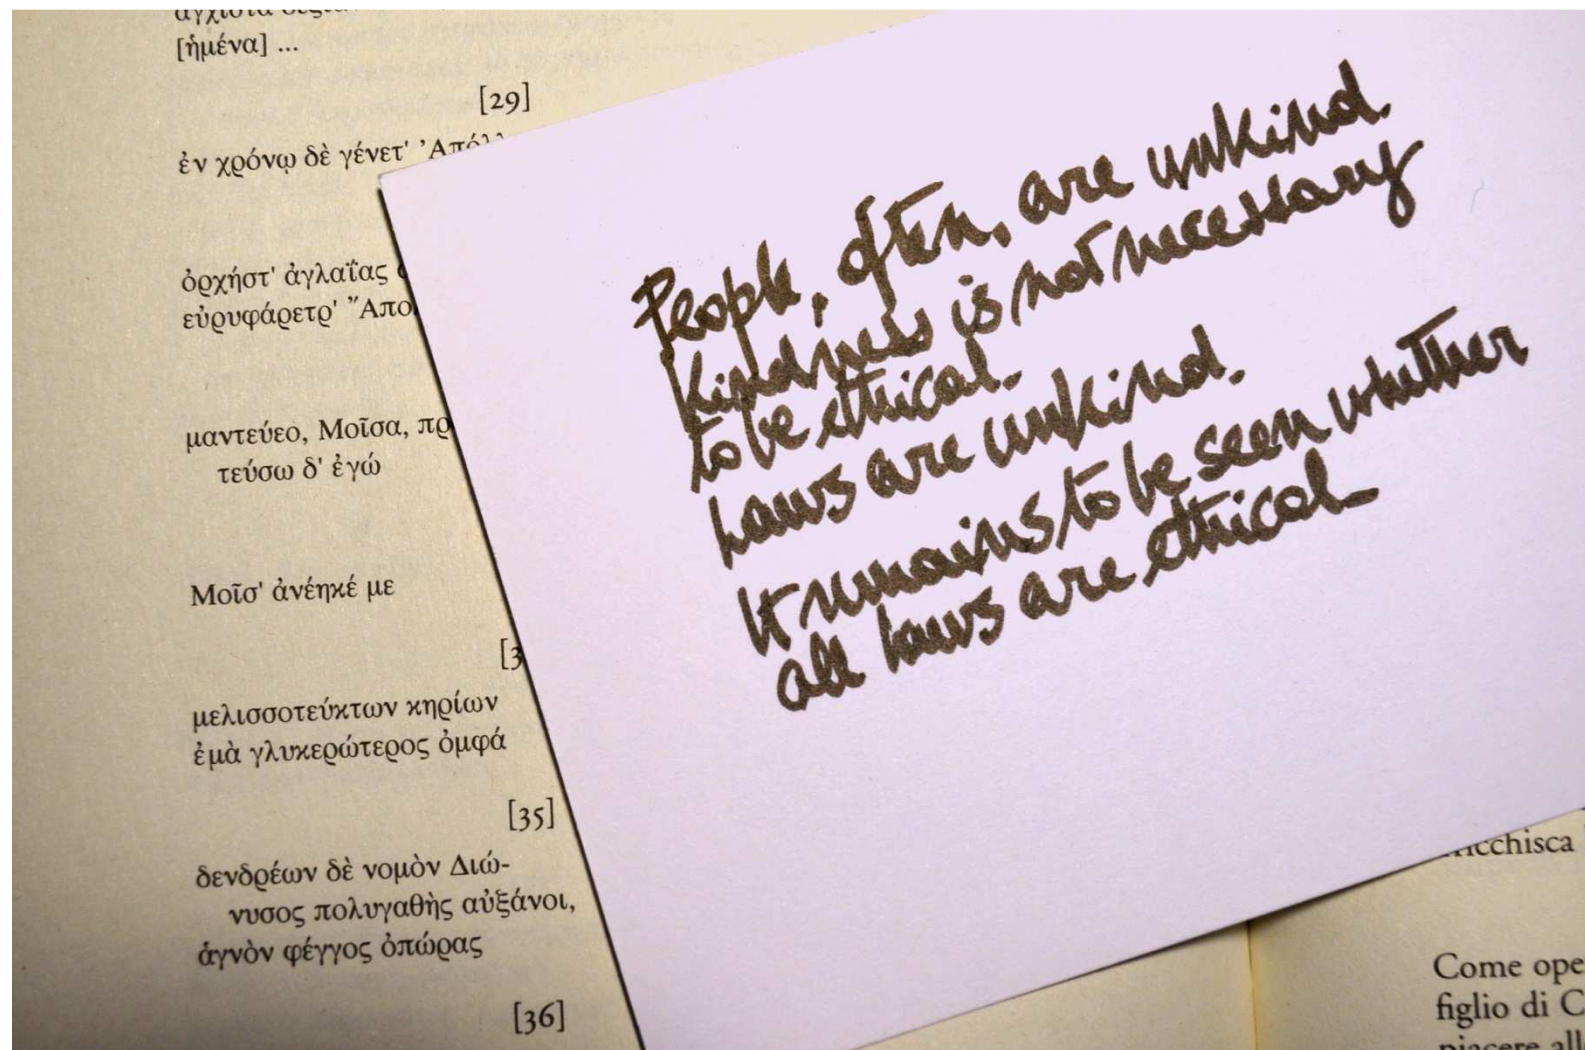 [ἡμένα] ...
[29]
ἐν χρόνῳ δὲ γένετ'
ὀρχήστ' ἀγλαΐας
εὐρυφάρετρ'
μαντεύεο, Μοῖσα,
τεύσω δ' ἐγώ
Μοῖσ' ἀνέηκέ με
μελισσοτεύκτων κηρίων
ἐμὰ γλυκερώτερος ὀμφά
[35]
δενδρέων δὲ νομὸν Διώ-
νυσος πολυγαθὴς αὐξάνοι,
ἁγνὸν φέγγος ὀπώρας
[36]
People, often, are unkind.
Kindness is not necessary
to be ethical.
Laws are unkind.
It remains to be seen whether
all laws are ethical
Come
figlio di